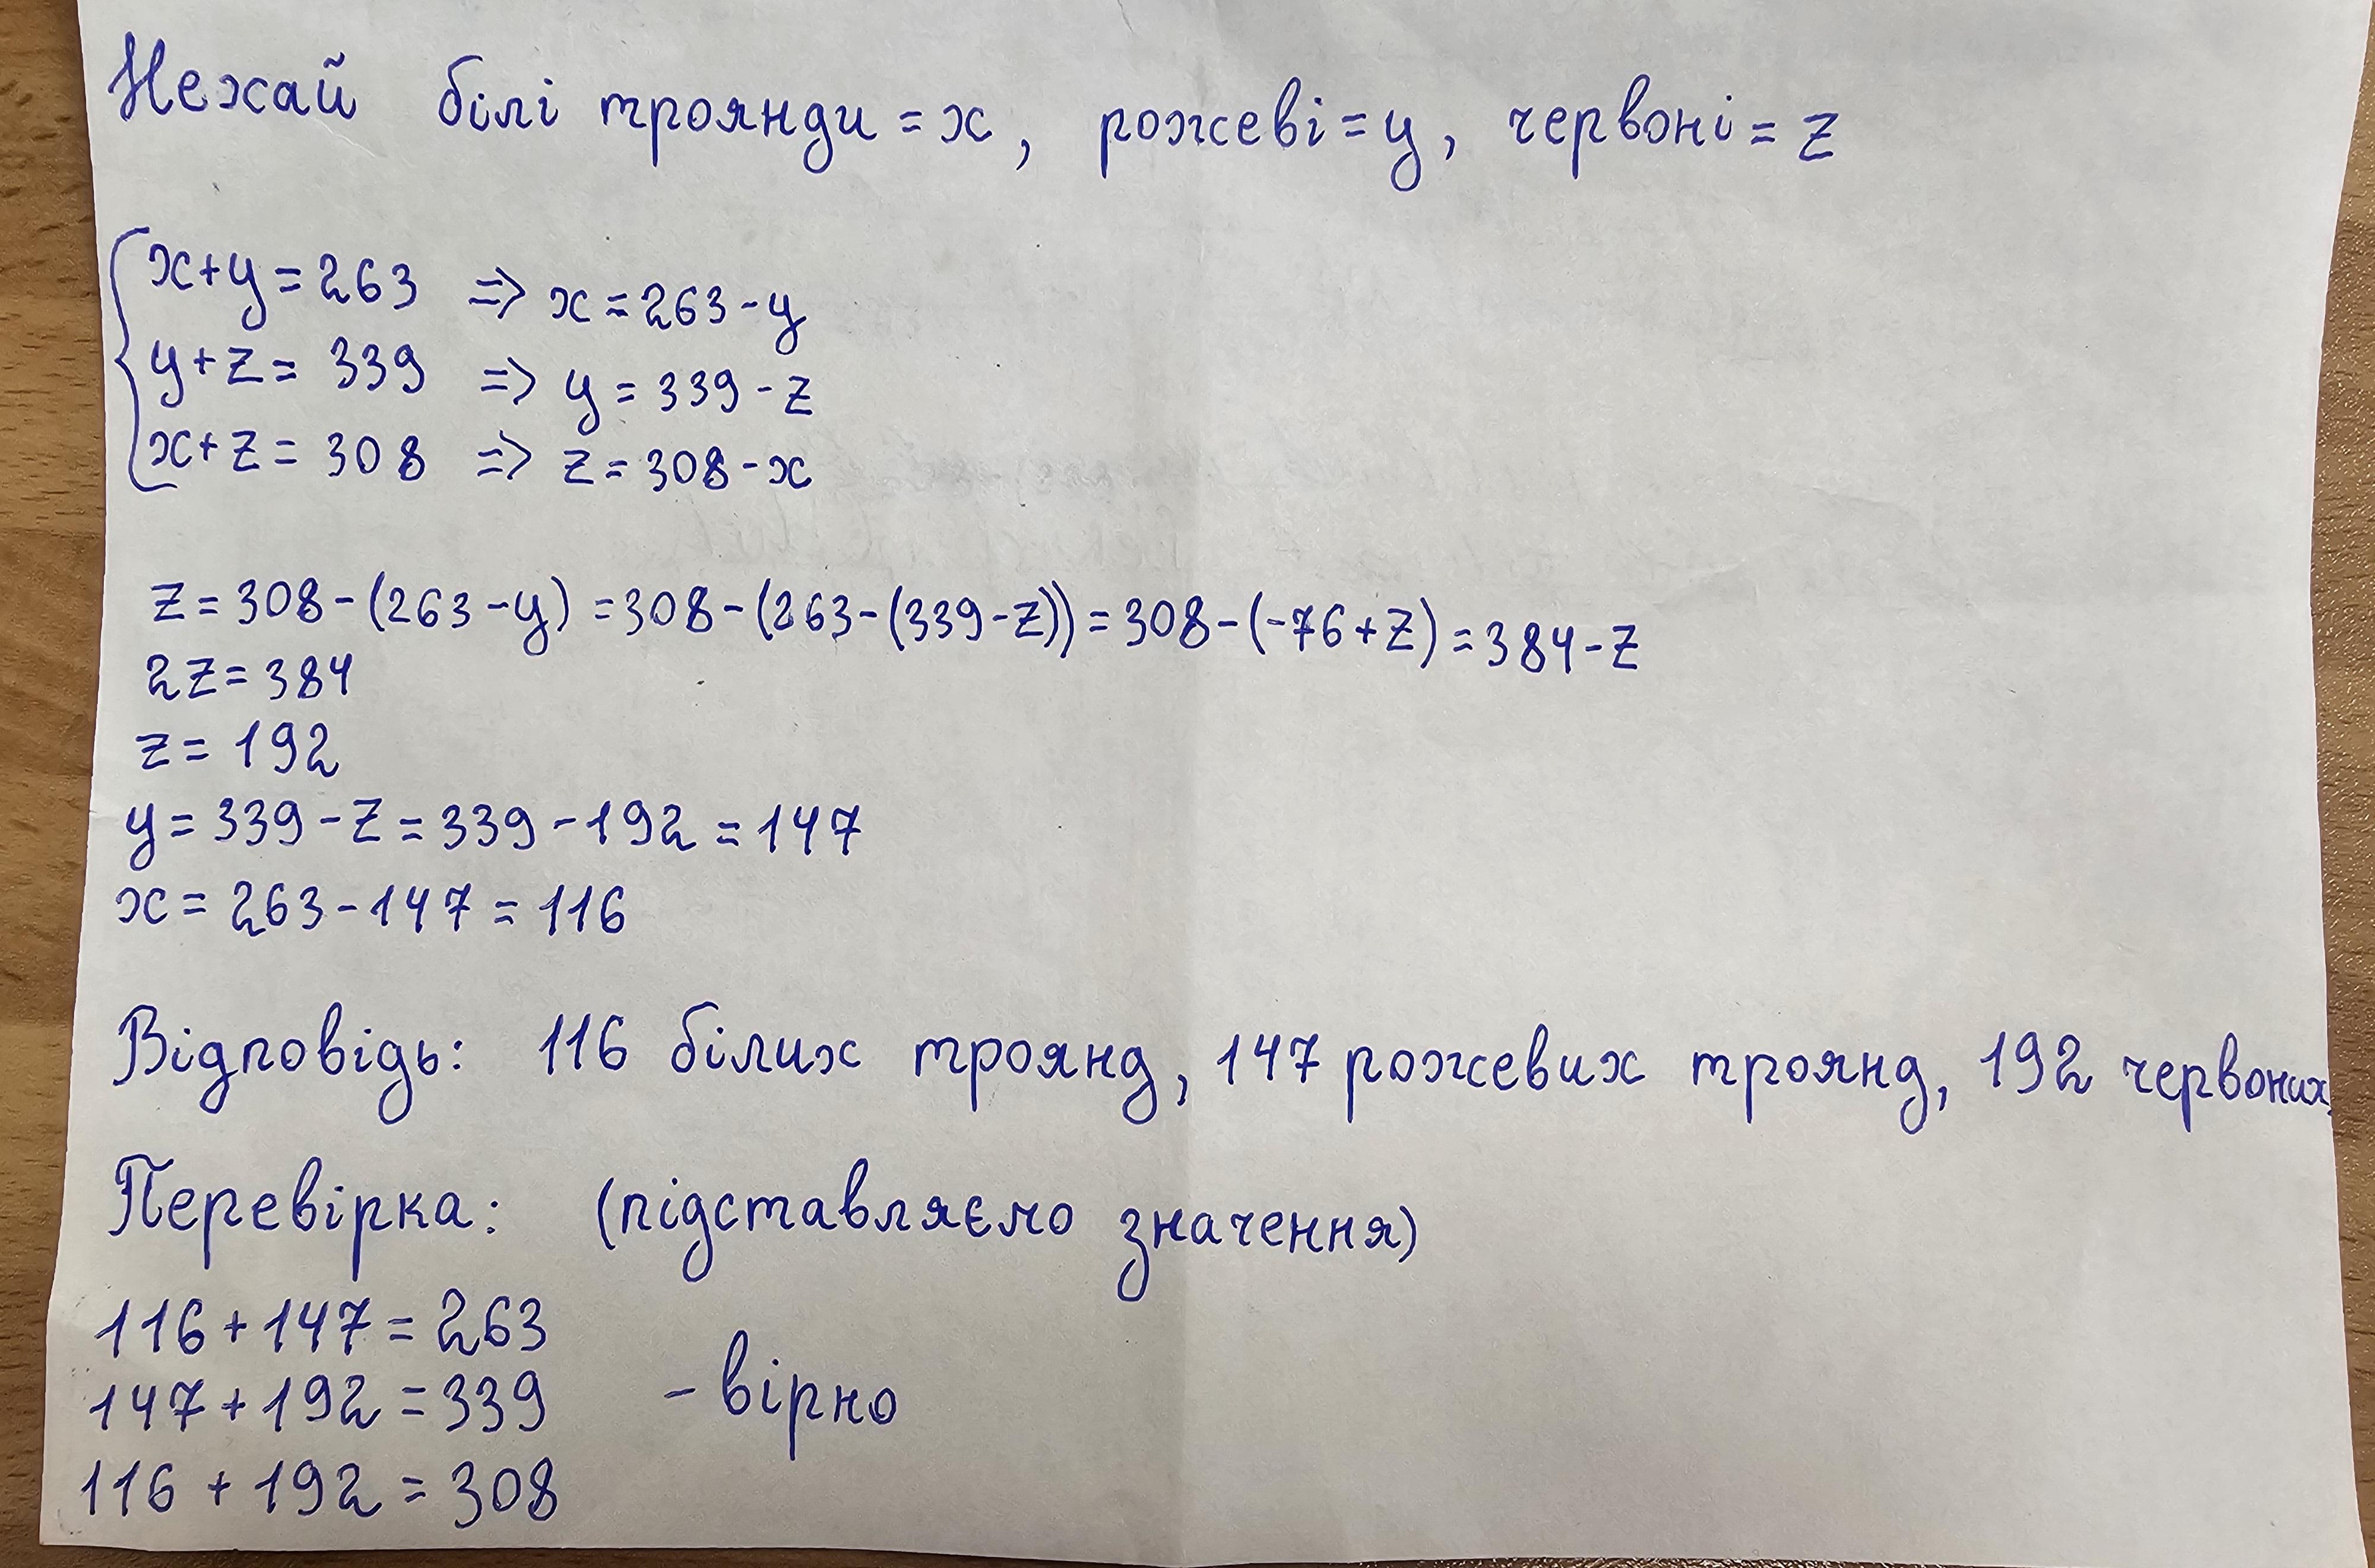 Нехай білі троянди = x, рожеві = y, червоні = z
x+y=263 => x=263-y
y+z=339 => y=339-z
x+z=308 => z=308-x
z=308-(263-y)=308-(263-(339-z))=308-(-76+z)=384-z
2z=384
z=192
y=339-z=339-192=147
x=263-147=116
Відповідь: 116 білих троянд, 147 рожевих троянд, 192 червоних.
Перевірка: (підставляємо значення)
116+147=263
147+192=339 - вірно
116+192=308